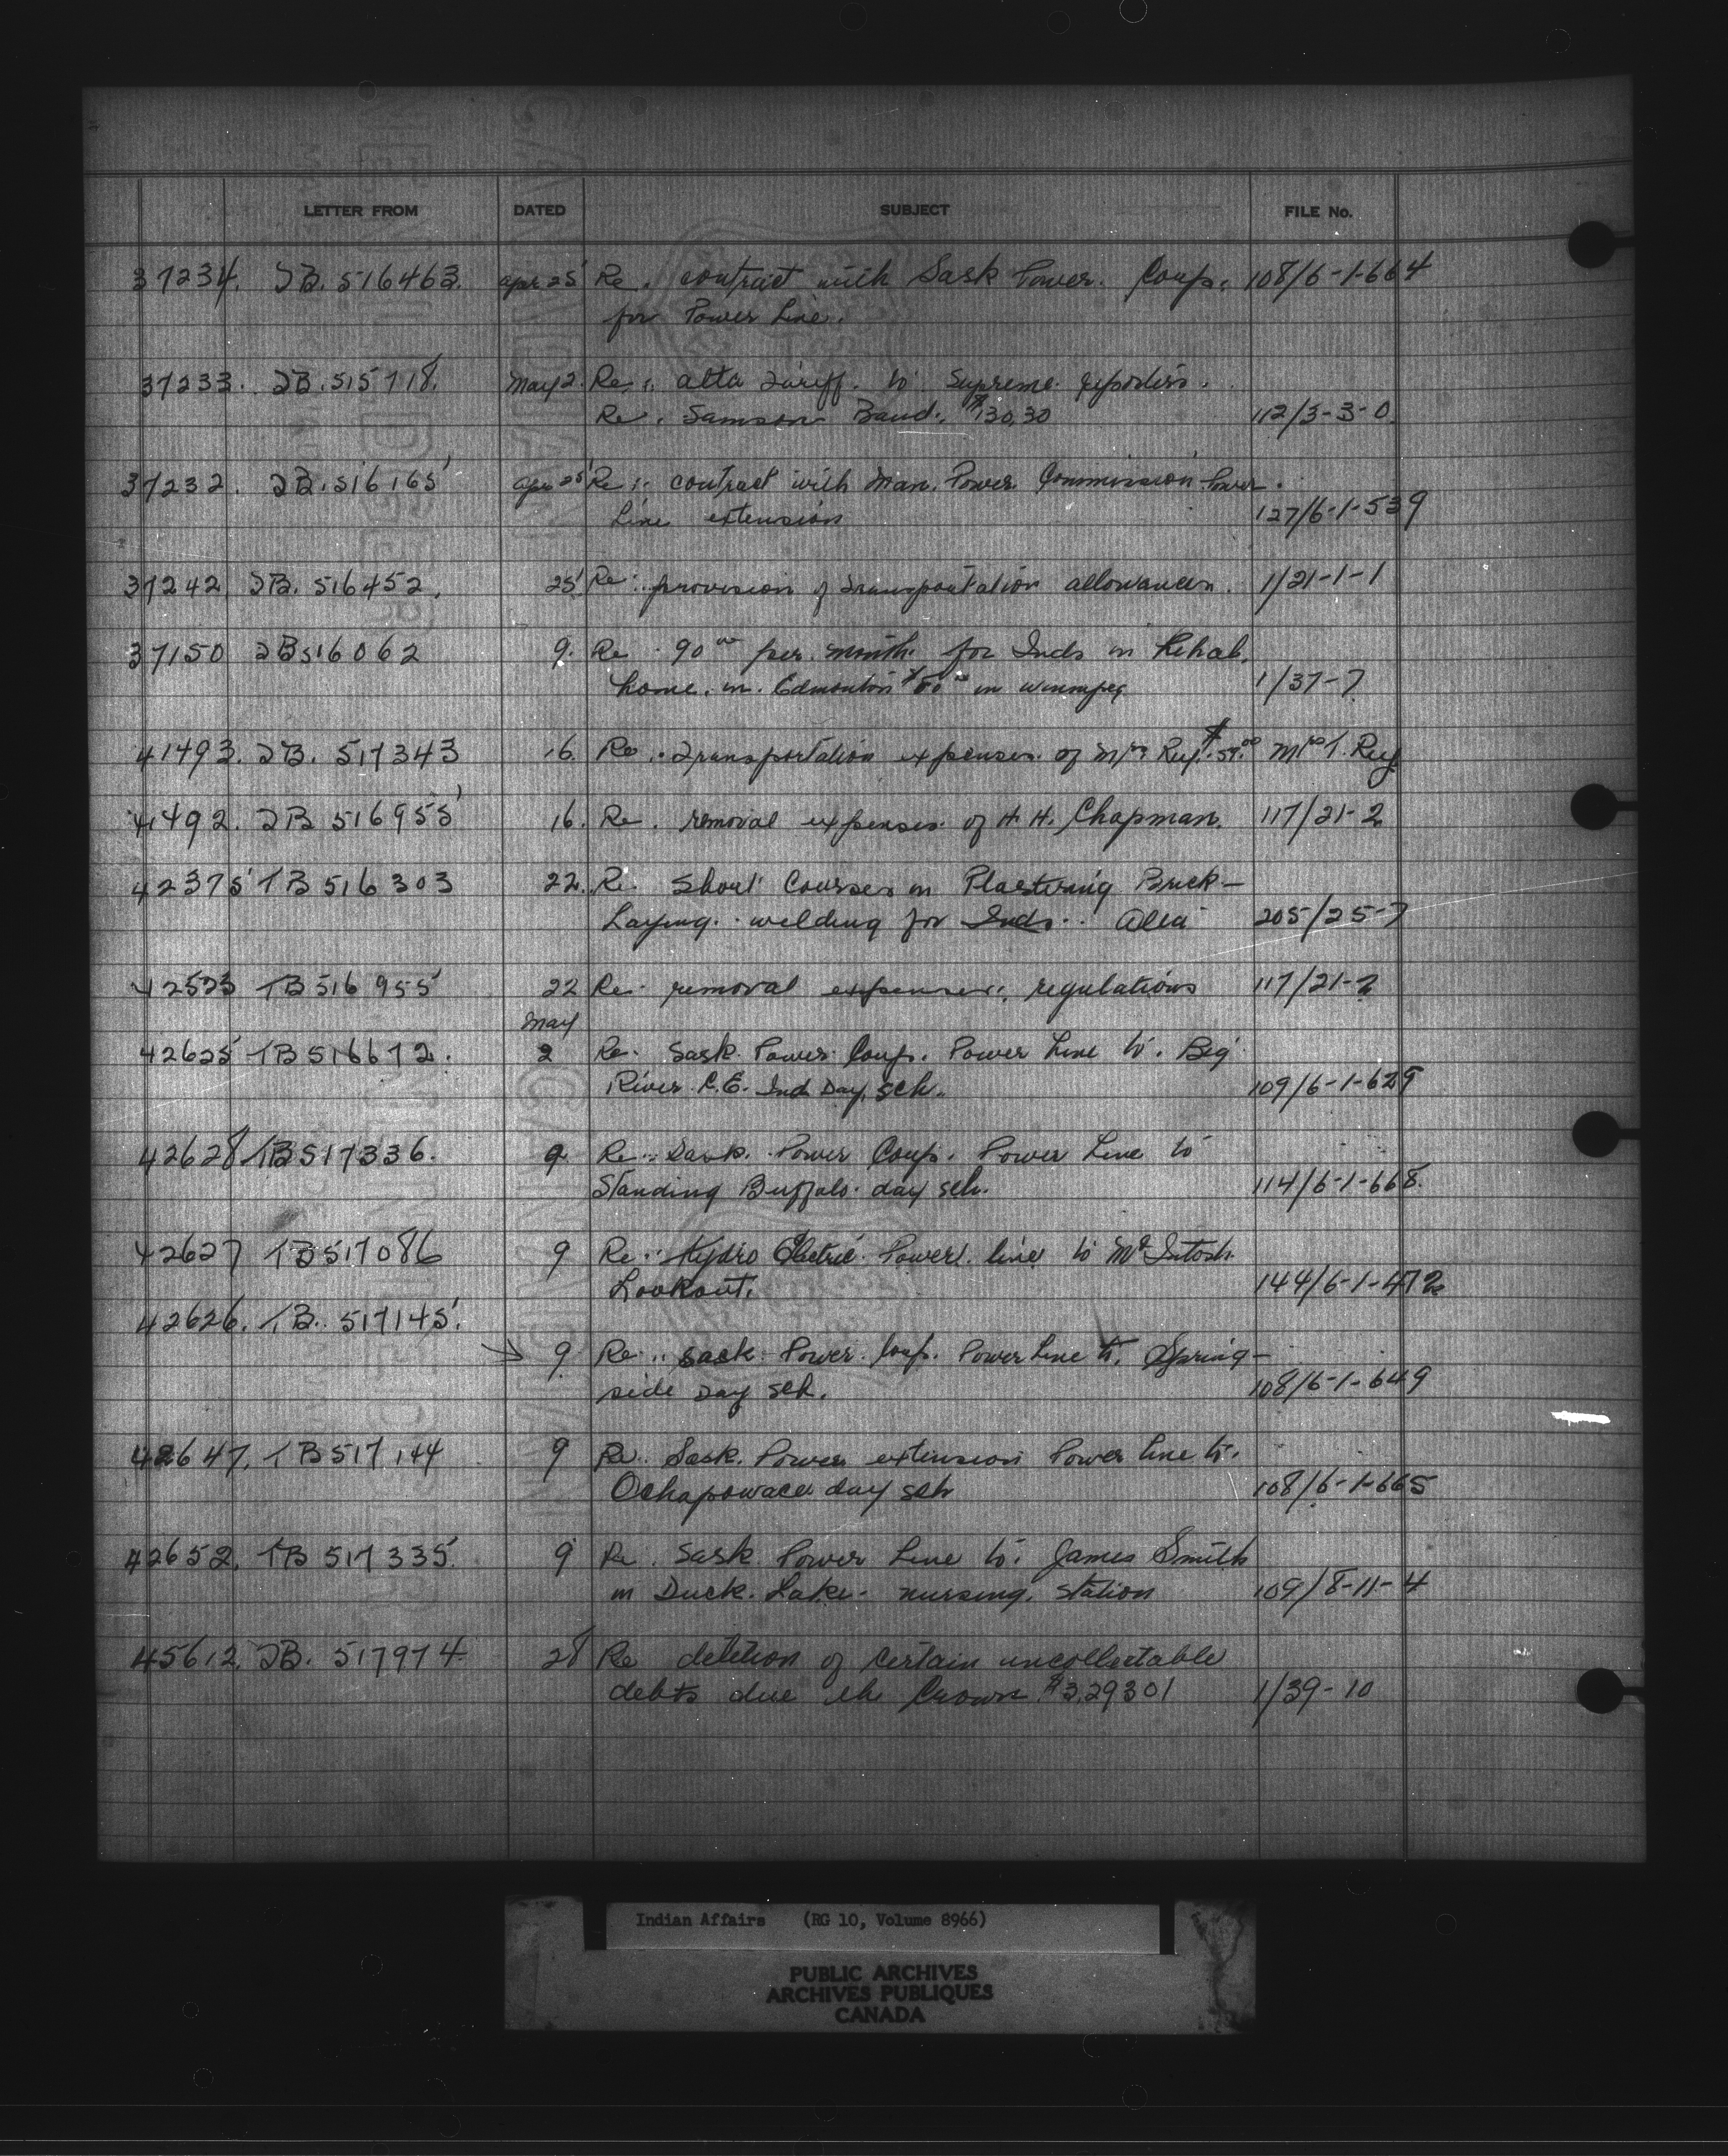 LETTER FROM DATED SUBJECT FILE No.
37234. TB. 516463. Apr 25 Re. contract with Sask Power. Corp. 108/6-1-664
for Power Line.
37233. TB. 515718. May 2. Re: Alta Tariff. to Supreme reporters.
Re. Samson Band. $130.30 112/3-3-0
37232. TB. 516165 Apr 25 Re: contract with Man. Power Commission Power.
Line extension 127/6-1-539
37242. TB. 516452. 25 Re: provision of transportation allowances. 1/21-1-1
37150 TB 516062 9. Re 90 00 per. month. for Inds in Rehab.
home. in. Edmonton $80 00 in Winnipeg 1/37-7
41493. TB. 517343 16. Re. Transportation expenses of Mrs Ruy.
41492. TB 516955 16. Re. removal expenses of H. H. Chapman. 117/21-2
42375 TB 516303 22. Re. Short Courses in Plastering Brick-
Laying. welding for Inds. Alta 205/25-7
42523 TB 516955 22 Re. removal expenses. regulations 117/21-2
May
42625 TB 516672. 2 Re. Sask. Power Corp. Power Line to. Big
River C.E. Ind Day sch. 109/6-1-629
42628 TB 517336. 9 Re. Sask. Power Corp. Power Line to
Standing Buffalo day sch. 114/6-1-668
42627 TB 517086 9 Re. Hydro Electric Power line to McIntosh
Lookout. 144/6-1-472
42626. TB. 517145.
9 Re. Sask Power. Corp. Power Line to. Spring-
side Day sch. 108/6-1-649
42647. TB 517144 9 Re. Sask. Power extension Power line to.
Ochapowace day sch 108/6-1-665
42652. TB 517335. 9 Re. Sask Power Line to. James Smith
in Duck. Lake- nursing. station 109/8-11-4
45612. TB. 517974 28 Re deletion of certain uncollectable
debts due the Crown $3,293 01 1/39-10
Indian Affairs (RG 10, Volume 8966)
PUBLIC ARCHIVES
ARCHIVES PUBLIQUES
CANADA